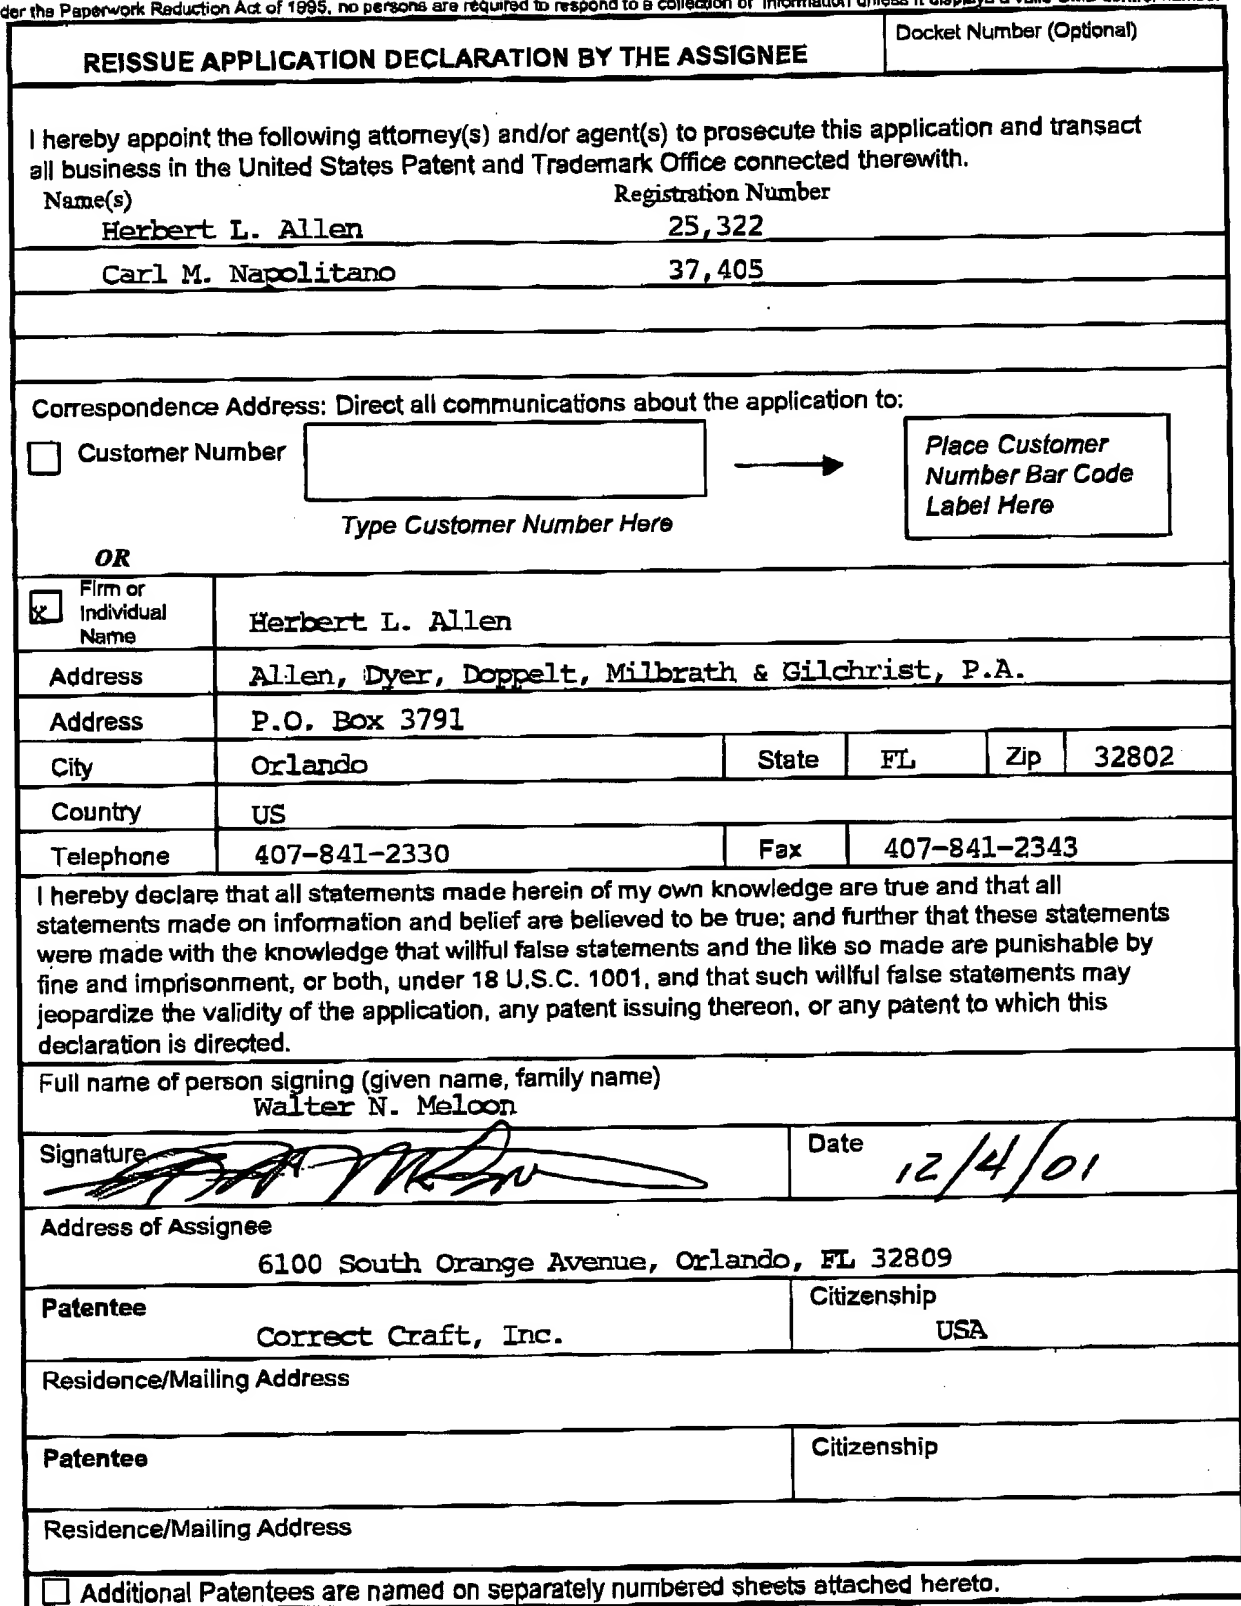 der the Paperwork Reduction Act of 1995, no persons are required to respond to a collection of information unless it displays a valid
REISSUE APPLICATION DECLARATION BY THE ASSIGNEE
Docket Number (Optional)
I hereby appoint the following attorney(s) and/or agent(s) to prosecute this application and transact
all business in the United States Patent and Trademark Office connected therewith.
Name(s) Registration Number
Herbert L. Allen 25,322
Carl M. Napolitano 37,405
Correspondence Address: Direct all communications about the application to:
Customer Number
Type Customer Number Here
Place Customer
Number Bar Code
Label Here
OR
x
Firm or
Individual
Name
Herbert L. Allen
Address Allen, Dyer, Doppelt, Milbrath & Gilchrist, P.A.
Address P.O. Box 3791
City Orlando State FL Zip 32802
Country US
Telephone 407-841-2330 Fax 407-841-2343
I hereby declare that all statements made herein of my own knowledge are true and that all
statements made on information and belief are believed to be true; and further that these statements
were made with the knowledge that willful false statements and the like so made are punishable by
fine and imprisonment, or both, under 18 U.S.C. 1001, and that such willful false statements may
jeopardize the validity of the application, any patent issuing thereon, or any patent to which this
declaration is directed.
Full name of person signing (given name, family name)
Walter N. Meloon
Signature Date 12/4/01
Address of Assignee
6100 South Orange Avenue, Orlando, FL 32809
Patentee Citizenship
Correct Craft, Inc. USA
Residence/Mailing Address
Patentee Citizenship
Residence/Mailing Address
Additional Patentees are named on separately numbered sheets attached hereto.